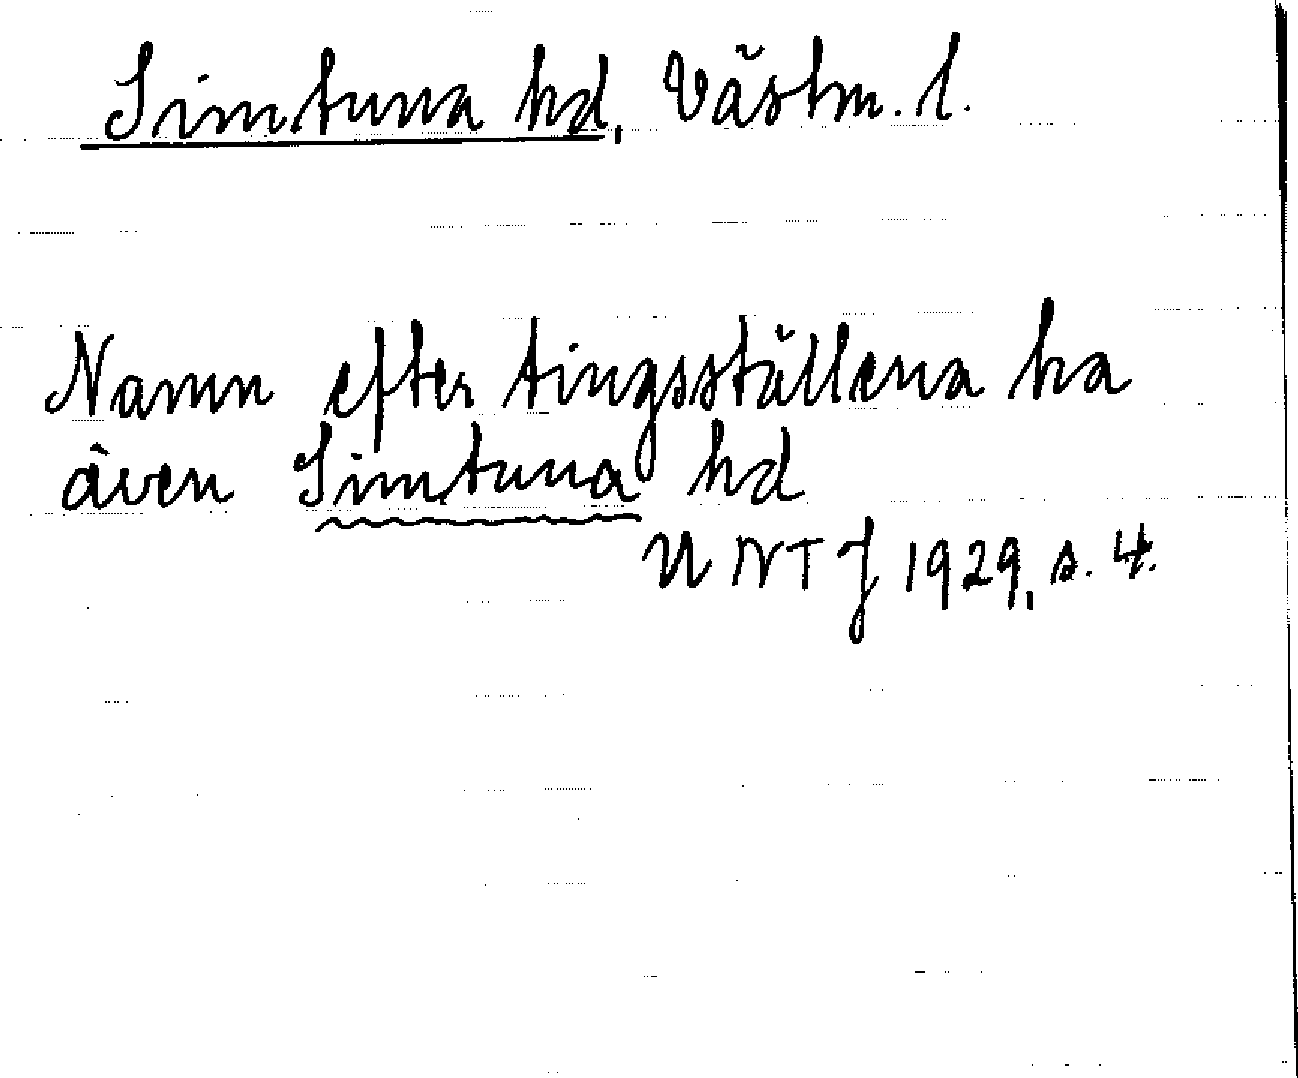 Simtuna hd, Västm. l.
Namn efter tingsställena ha
även Simtuna hd
UNTJ 1929, s. 4.